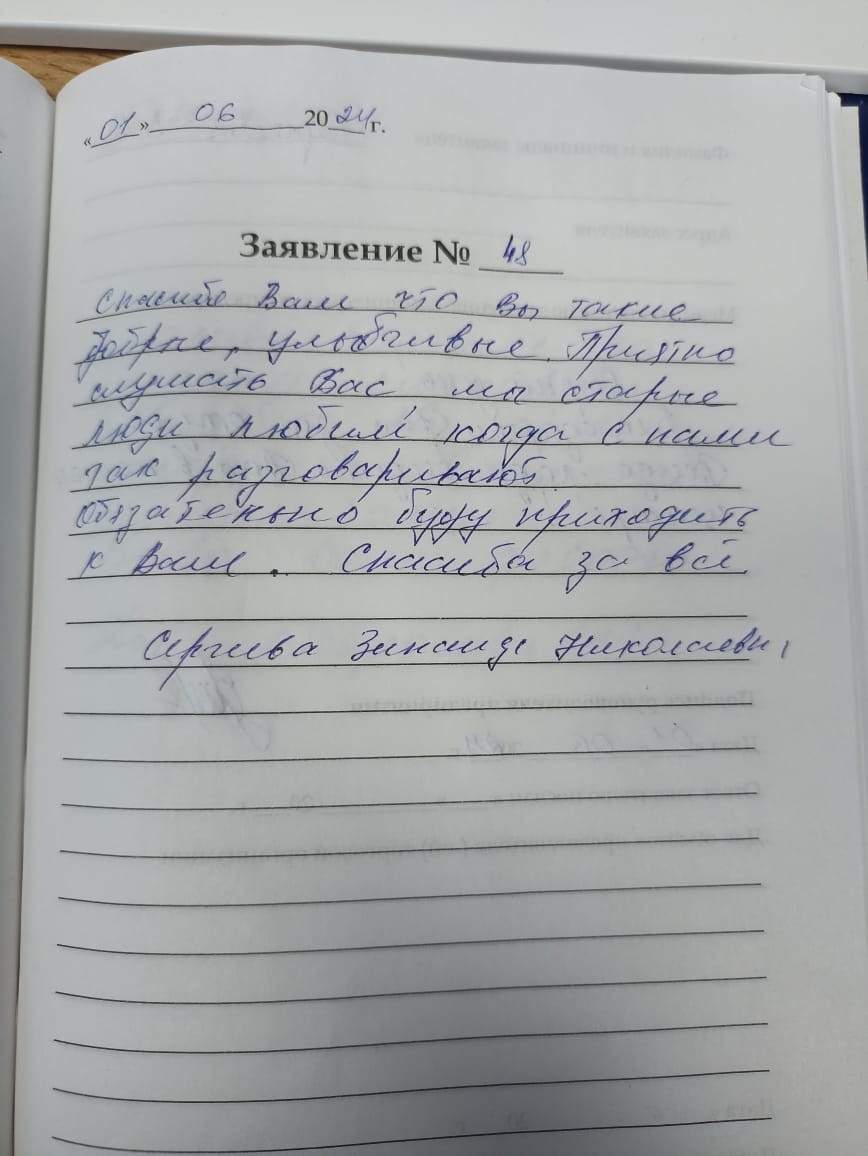 «01» 06 2024 г.
Заявление № 48
спасибо Вам что Вы такие
добрые, улыбчивые. Приятно
слушать Вас мы старые
люди любим когда с нами
так разговаривают.
Обязательно буду приходить
к Вам. Спасиба за всё
Зинаида Николаевн